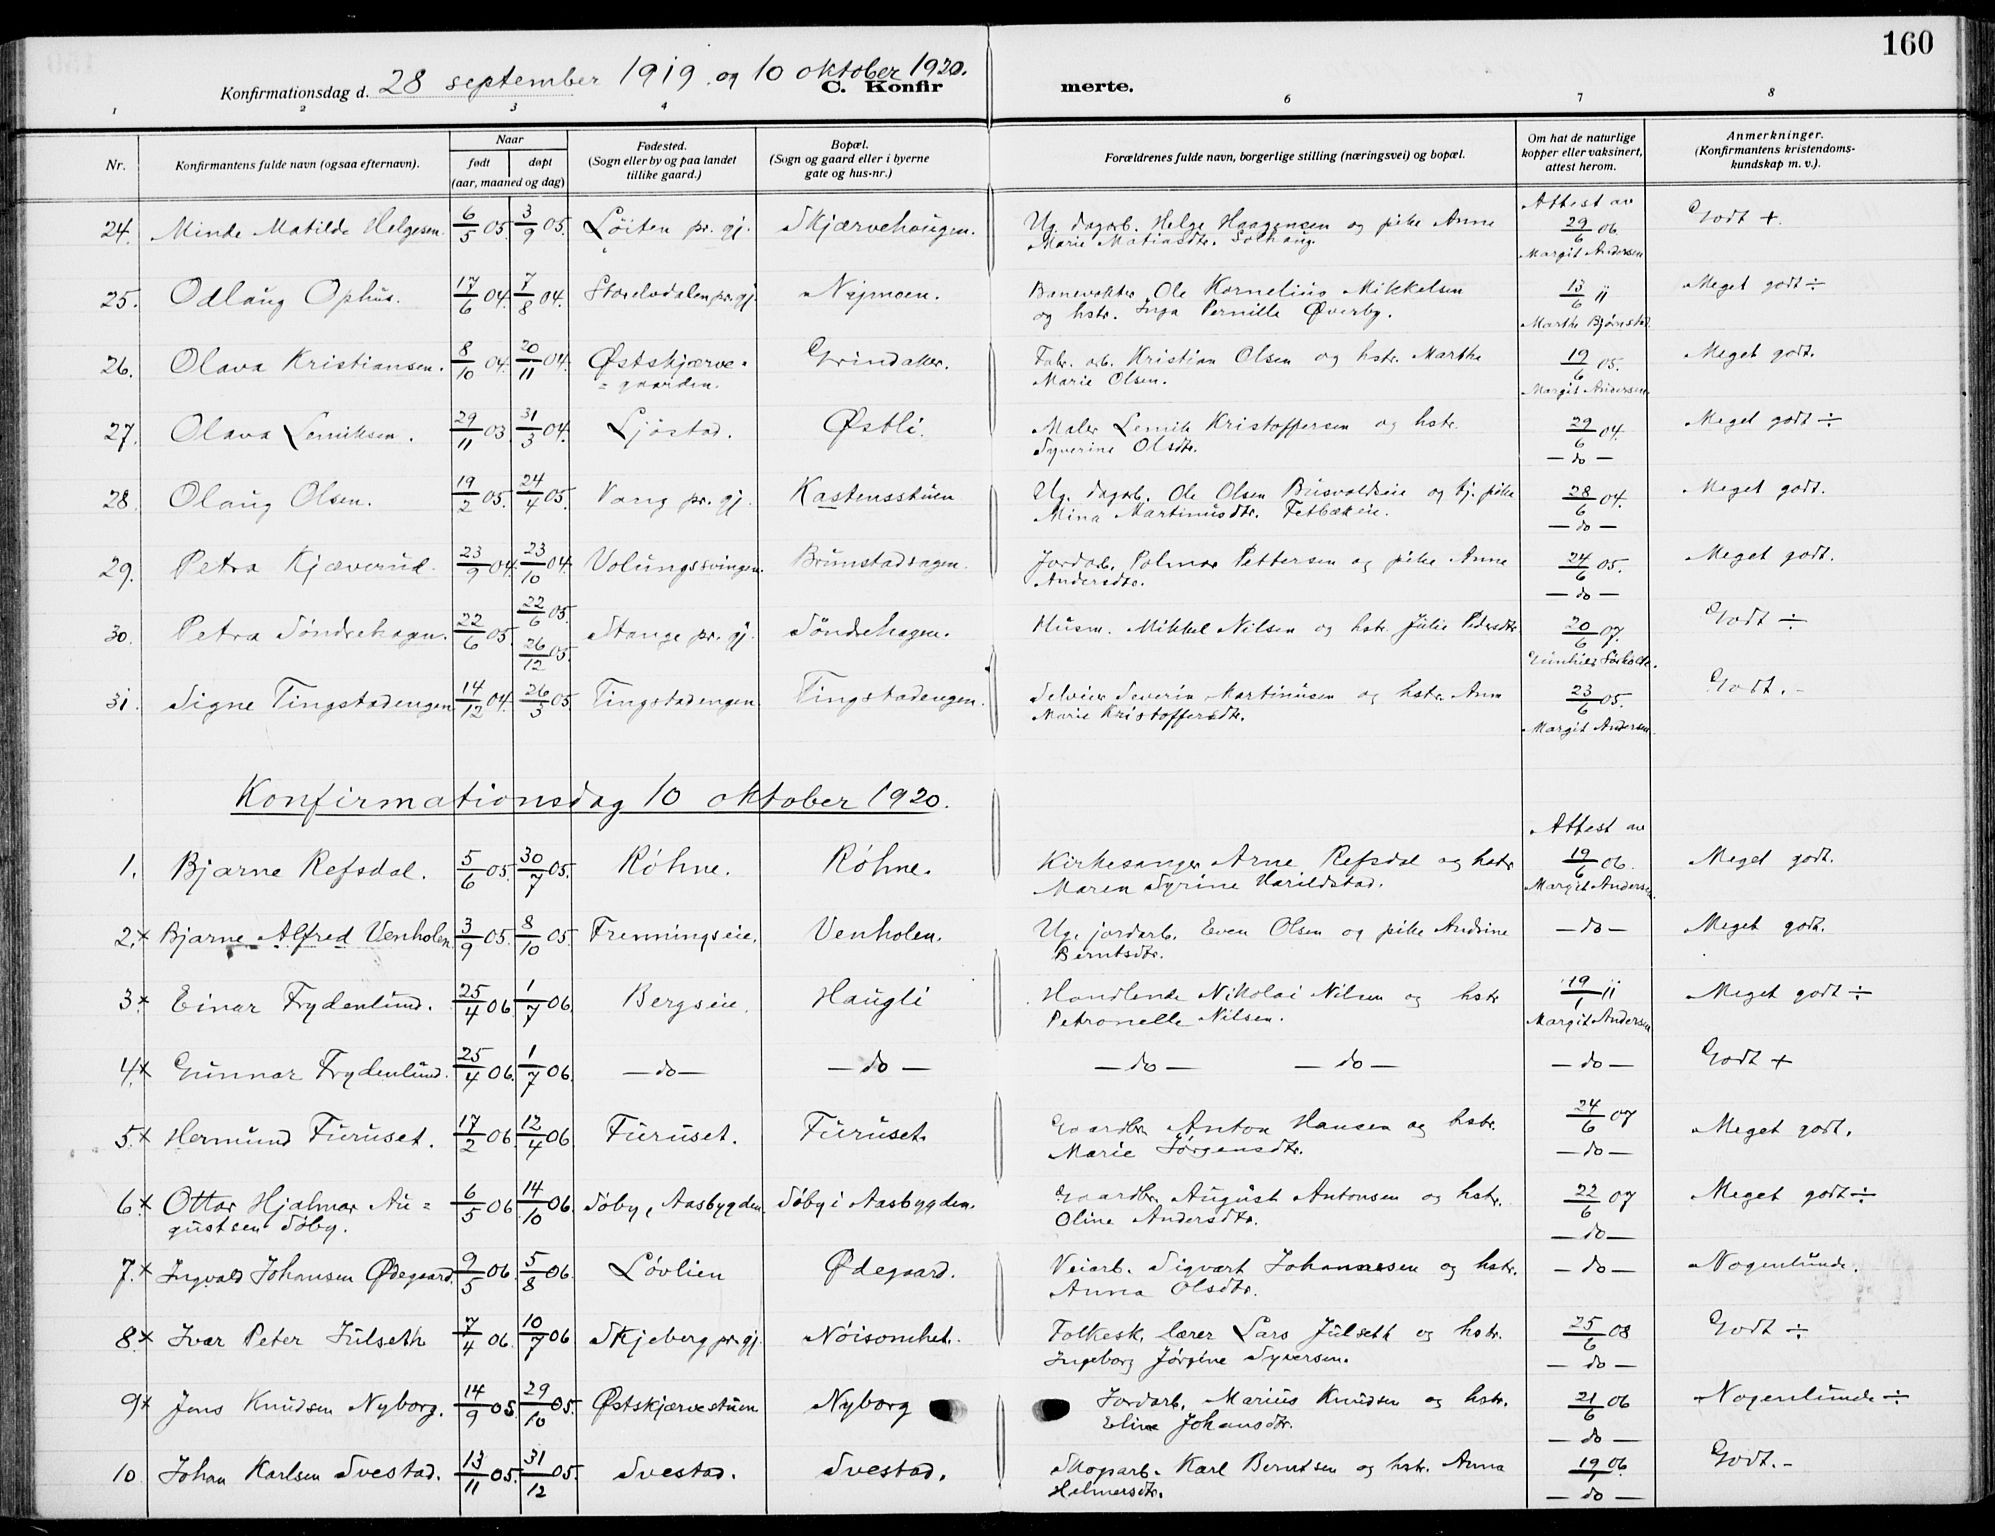 160
Konfirmationsdag d. 28 september 1919 og 10 oktober 1920.
C. Konfirmerte.
1 2 3 4 6 7 8
Nr.
Konfirmantens fulde navn (ogsaa efternavn).
Naar
født døpt
(aar, maaned og dag)
Fødested.
(Sogn eller by og paa landet
tillike gaard.)
Bopæl.
(Sogn og gaard eller i byerne
gate og hus-nr.)
Forældrenes fulde navn, borgerlige stilling (næringsvei) og bopæl.
Om hat de naturlige
kopper eller vaksinert,
attest herom.
Anmerkninger.
(Konfirmantens kristendoms-
kundskap m. v.).
Attest av
24. Minda Matilde Helgesen. 6/5 05. 3/9 05. Løiten pr. gj. Skjærvehaugen. Ug. dagarb. Helge Haagensen og pike Anne 29/6 06 Godt +.
Marie Matiasdtr. Solhaug. Margit Andersen
25. Odlaug Ophus. 17/6 04. 7/8 04. Storelvdalen pr. gj. Nymoen. Banevokter Ole Kornelius Mikkelsen 13/6 11 Meget godt ÷
og hstr. Inga Pernille Øverby. Marthe Bjørnstad
26. Olava Kristiansen. 8/10 04. 20/11 04. Østskjærve- Grindaker. Fabr. arb. Kristian Olsen og hstr. Marthe 19/6 05. Meget godt.
= gaarden. Marie Olsen. Margit Andersen
27. Olava Lemiksen. 29/11 03. 31/3 04. Ljøstad. Østli. Maler Lemik Kristoffersen og hstr. 29/6 04. Meget godt ÷
Syverine Olsdtr. — do —
28. Olaug Olsen. 19/2 05. 24/4 05. Vang pr. gj. Kastensstuen Ug. dagarb. Ole Olsen Busvoldseie og tj. pike 28/6 04. Meget godt.
Mina Martinusdtr. Fetbækeie. — do —
29. Petra Kjæverud. 23/9 04. 23/10 04. Volungssvingen. Brunstadhagen. Jordarb. Palmar Pettersen og pike Anne 24/6 05. Meget godt.
Andersdtr. — do —
30. Petra Søndrehagen. 22/6 05. 22/6 05. 26/12 05. Stange pr. gj. Søndrehagen. Husm. Mikkel Nilsen og hstr. Julie Pedersdtr. 20/6 07. Godt ÷
31. Signe Tingstadengen 14/12 04. 26/3 05. Tingstadengen Tingstadengen. Selveier Severin Martinusen og hstr. Ann 23/6 05. Godt.-
Marie Kristoffersdtr. Margit Andersen
Konfirmationsdag 10 oktober 1920.
Attest av
1. Bjarne Refsdal. 5/6 05. 30/7 05. Røhne. Røhne. Kirkesanger Arne Refsdal og hstr. 19/6 06. Meget godt.
Maren Syrine Varildstad. Margit Andersen
2.x Bjarne Alfred Venholen. 3/9 05. 8/10 05. Frenningseie. Venholen. Ug. jordarb. Even Olsen og pike Andrine — do — Meget godt.
Berntsdtr.
3.x Einar Frydenlund. 25/4 06 1/7 06. Bergseie. Haugli Handlende Nikolai Nilsen og hstr 19/1 11 Meget godt ÷
Petronelle Nilsen. Margit Andersen
4.x Gunnar Frydenlund. 25/4 06. 1/7 06. — do — — do — — do — — do — — do — Godt +
5.x Hermund Furuset. 17/2 06. 12/4 06 Furuset. Furuset. Gaardbr. Anton Hansen og hstr. 24/6 07 Meget godt.
Marie Jørgensdtr. — do —
6.x Ottar Hjalmar Au= 6/5 06 14/10 06. Søby, Aasbygden. Søby i Aasbygden. Gaardbr. August Antonsen og hstr. 22/6 07 Meget godt ÷
gustsen Søby. Oline Andersdtr. — do —
7.x Ingvald Johansen Ødegaard. 9/5 06. 5/8 06. Løvlien Ødegaard. Veiarb. Sigvart Johannesen og hstr. — do — Nogenlunde.
Anna Olsdtr.
8.x Ivar Peter Julseth 7/4 06. 10/7 06 Skjeberg pr. gj. Nøisomhet. Folkesk. lærer Lars Julseth og hstr. 25/6 08 Godt ÷
Ingeborg Jørgine Syversen. — do —
9.x Jens Knudsen Nyborg. 14/9 05. 29/10 05. Østskjærvestuen Nyborg Jordarb. Marius Knudsen og hstr. 21/6 06 Nogenlunde ÷
Eline Johansdtr. — do —
10. Johan Karlsen Svestad. 13/11 05. 31/12 05. Svestad. Svestad. Skogarb. Karl Berntsen og hstr. Anna 19/1 06 Godt.-
Helmersdtr. — do —